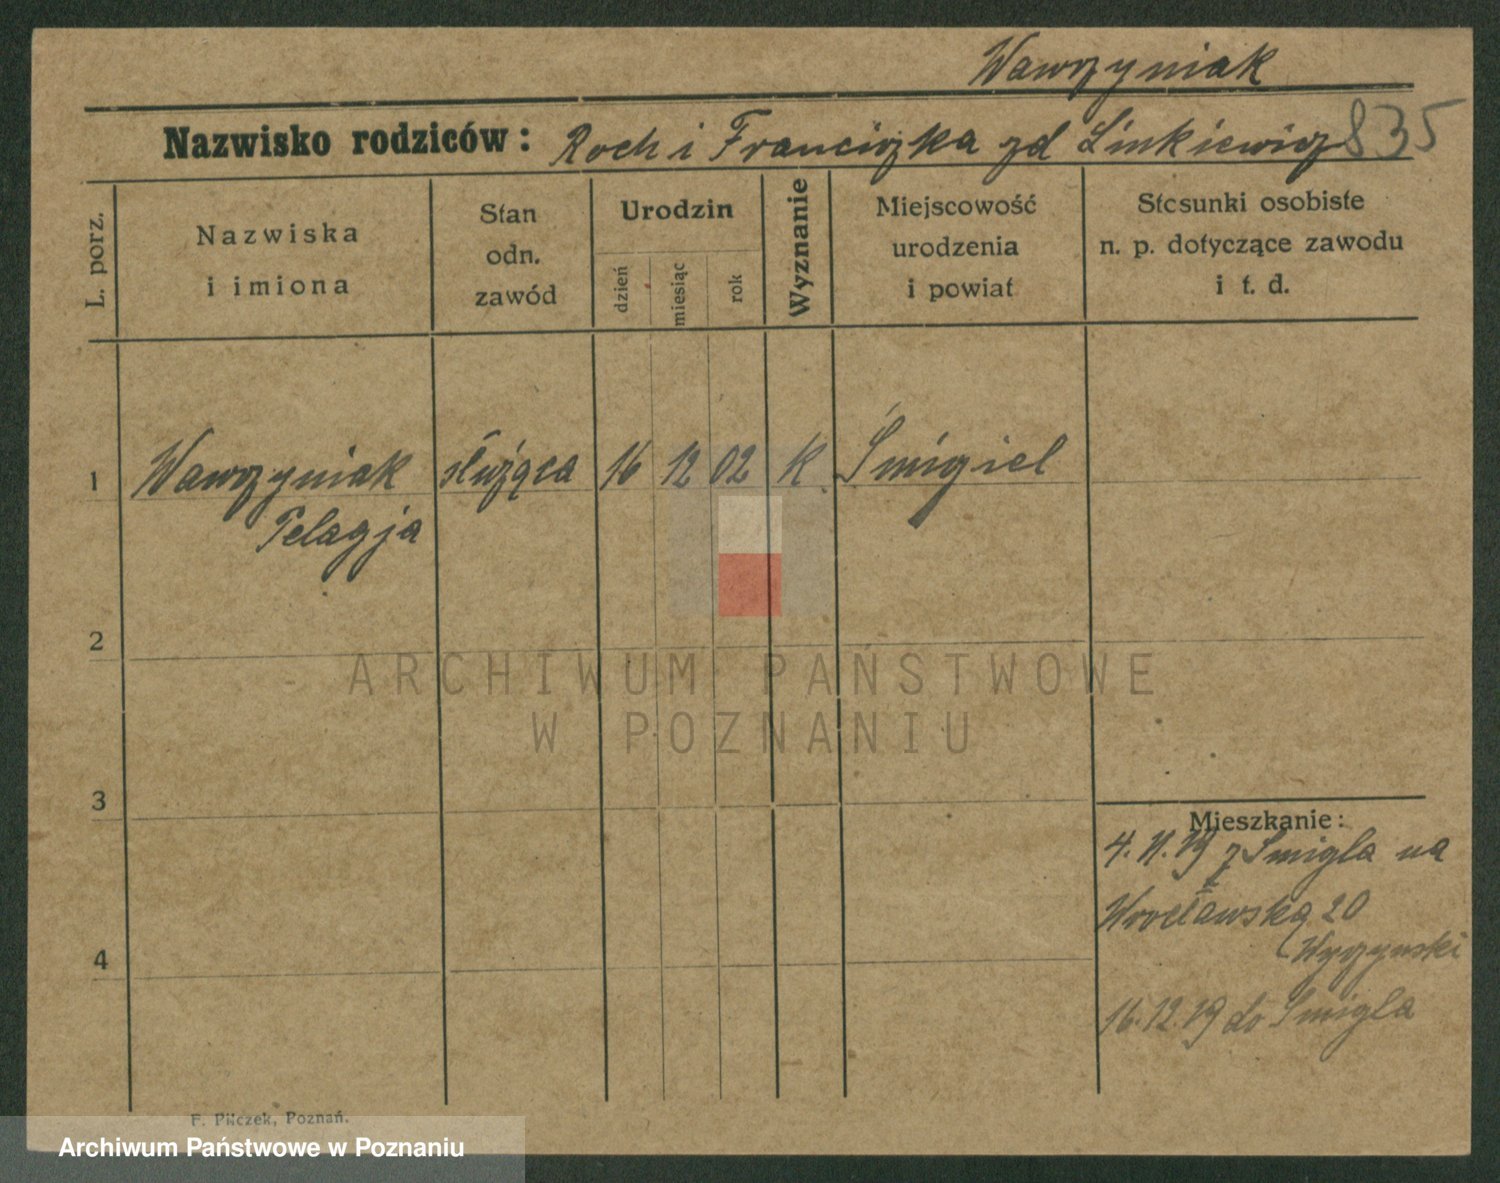 Wawrzyniak
Nazwisko rodziców: Roch i Franciszka zd Linkiewicz 835
L. porz.
Nazwiska
i imiona
Stan
odn.
zawód
Urodzin
dzień
miesiąc
rok
Wyznanie
Miejscowość
urodzenia
i powiat
Stosunki osobiste
n. p. dotyczące zawodu
i t. d.
1 Wawrzyniak służąca 16 12 02 K. Śmigiel
Pelagja
2
3
4
Mieszkanie:
4. 11. 19 z Śmigla na
Wrocławską 20
16. 12. 19 do Śmigla
F. Pilczek, Poznań.
ARCHIWUM PAŃSTWOWE
W POZNANIU
Archiwum Państwowe w Poznaniu